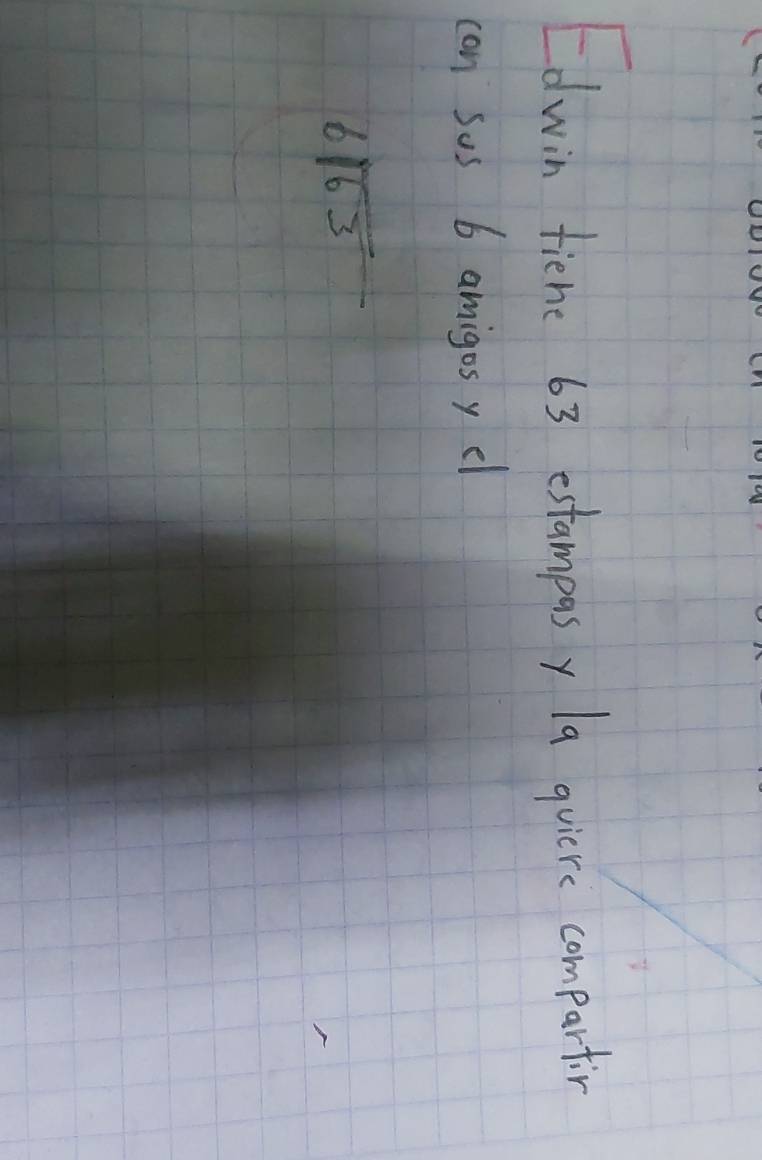 Edwin tiene 63 estampas y la quiere compartir
con sus 6 amigos y el
6 63